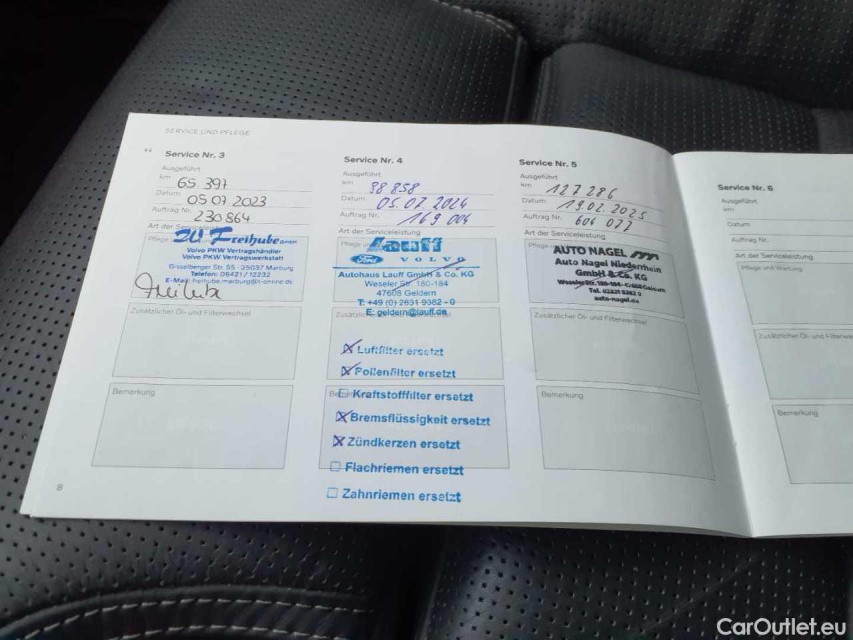 SERVICE UND PFLEGE
Service Nr. 3
Ausgeführt
km 65 397
Datum 05 07 2023
Auftrag Nr. 230864
Art der Serviceleistung
Pflege
Freihube GmbH
Volvo PKW Vertragshändler
Volvo PKW Vertragswerkstatt
Gisselberger Str. 55 - 35037 Marburg
Telefon: 06421 / 12232
E-Mail: freihube.marburg@t-online.de
Zusätzlicher Öl- und Filterwechsel
Bemerkung
8
Service Nr. 4
Ausgeführt
km 98 858
Datum 05.07.2024
Auftrag Nr. 169 004
Art der Serviceleistung
Pflege
Lauff
Ford VOLVO
Autohaus Lauff GmbH & Co. KG
Weseler Str. 180-184
47608 Geldern
T: +49 (0) 2831 9382 - 0
E: geldern@lauff.de
Luftfilter ersetzt
Pollenfilter ersetzt
Kraftstofffilter ersetzt
Bremsflüssigkeit ersetzt
Zündkerzen ersetzt
Flachriemen ersetzt
Zahnriemen ersetzt
Service Nr. 5
Ausgeführt
km 127 286
Datum 19.02.2025
Auftrag Nr. 604 077
Art der Serviceleistung
Pflege
AUTO NAGEL
Auto Nagel Niederrhein
GmbH & Co. KG
Weseler Str. 180-184 Geldern
Tel. 02831 9382 0
auto-nagel.de
Zusätzlicher Öl- und Filterwechsel
Bemerkung
Service Nr. 6
Ausgeführt
km
Datum
Auftrag Nr.
Art der Serviceleistung
Pflege und Wartung
Zusätzlicher Öl- und Filterwechsel
Bemerkung
CarOutlet.eu